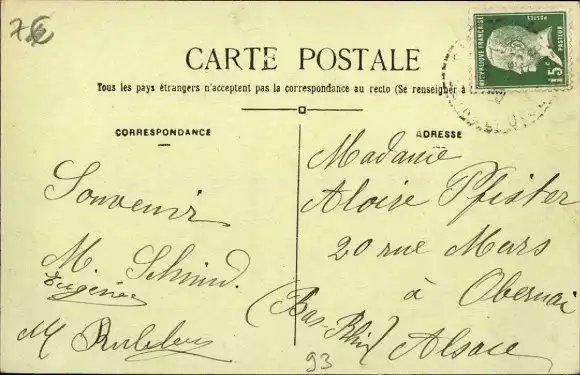 7€
CARTE POSTALE
Tous les pays étrangers n'acceptent pas la correspondance au recto (Se renseigner à
CORRESPONDANCE
Souvenir
M. Schmid.
Eugénie
M
ADRESSE
Madame
Aloise Pfister
20 rue Mars
à Obernai
(Bas-Rhin)
Alsace
93
RÉPUBLIQUE FRANÇAISE
POSTES
PASTEUR
15c